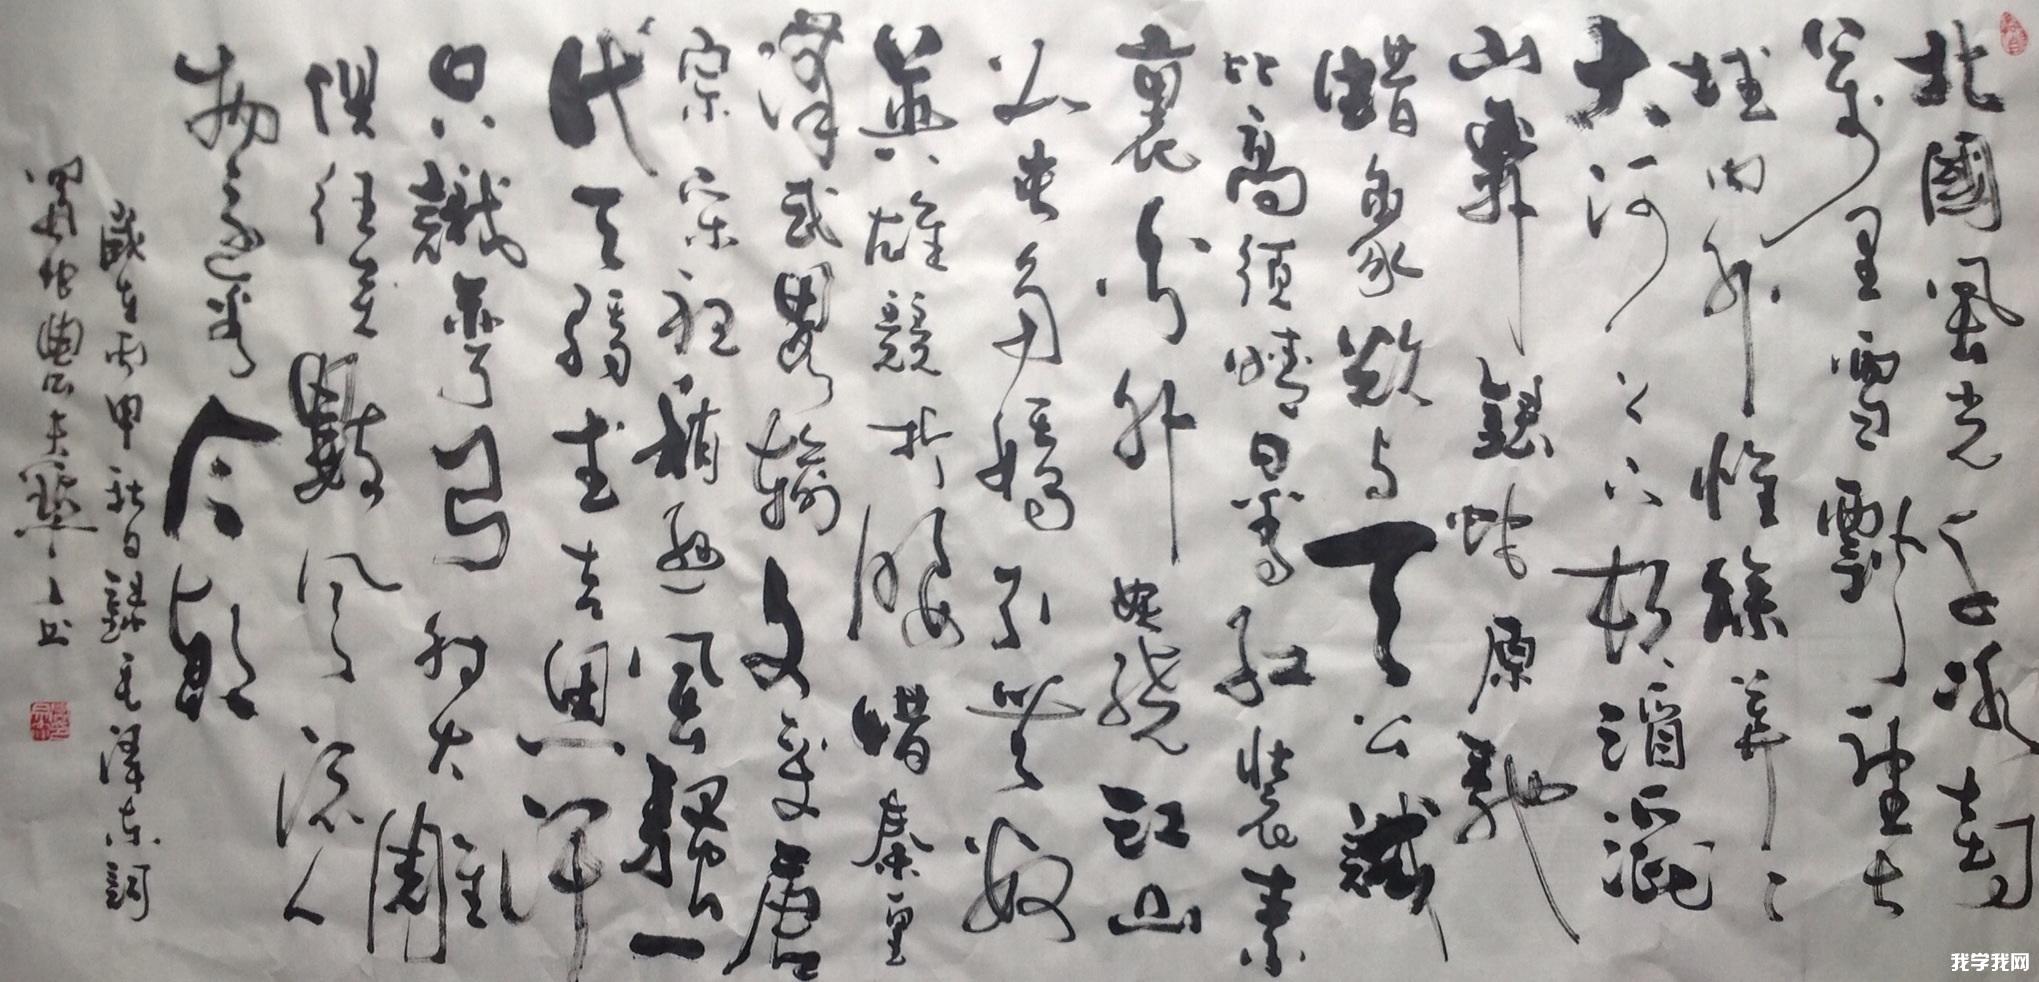 北國風光千里冰封
萬里雪飄望長
城内外惟餘莽々
大河上下頓滔滔
山舞銀蛇原馳
蠟象欲与天公試
比高須晴日看紅裝素
裹分外妖嬈江山
如此多嬌引無數
英雄競折腰惜秦皇
漢武略輸文采唐
宗宋祖稍遜風騷一
代天驕成吉思汗
只識彎弓射大雕
俱往矣數風流人
物還看今朝
歲在丙申秋日錄毛澤東詞
蜀地
書
我学我网